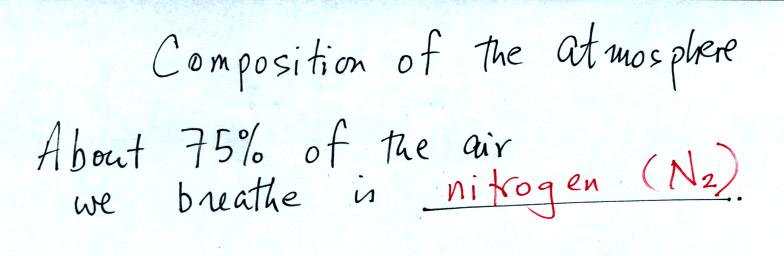 Composition of the atmosphere
About 75% of the air
we breathe is nitrogen (N₂).